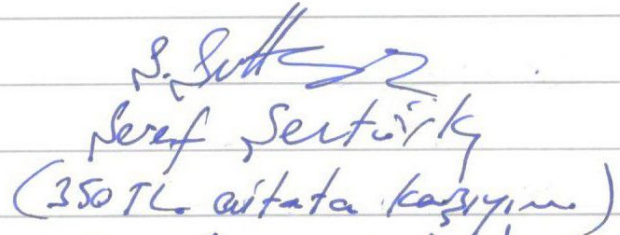 Şeref Şentürk
(350 TL. aidata karşıyım)